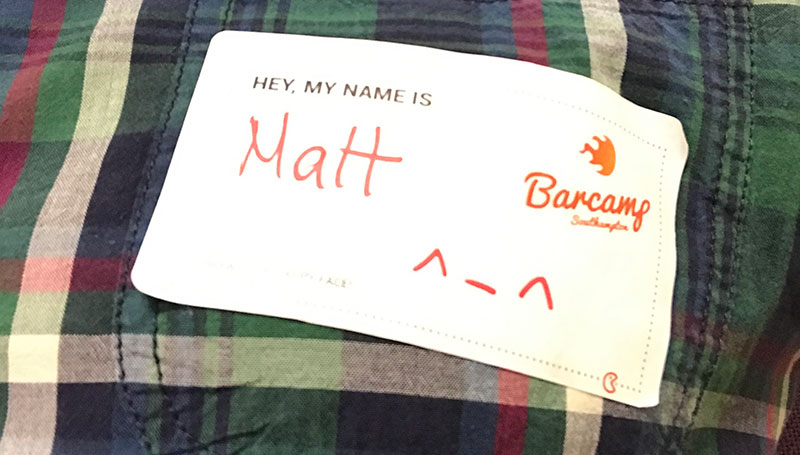 HEY, MY NAME IS
Matt
Barcamp
Southampton
^_^